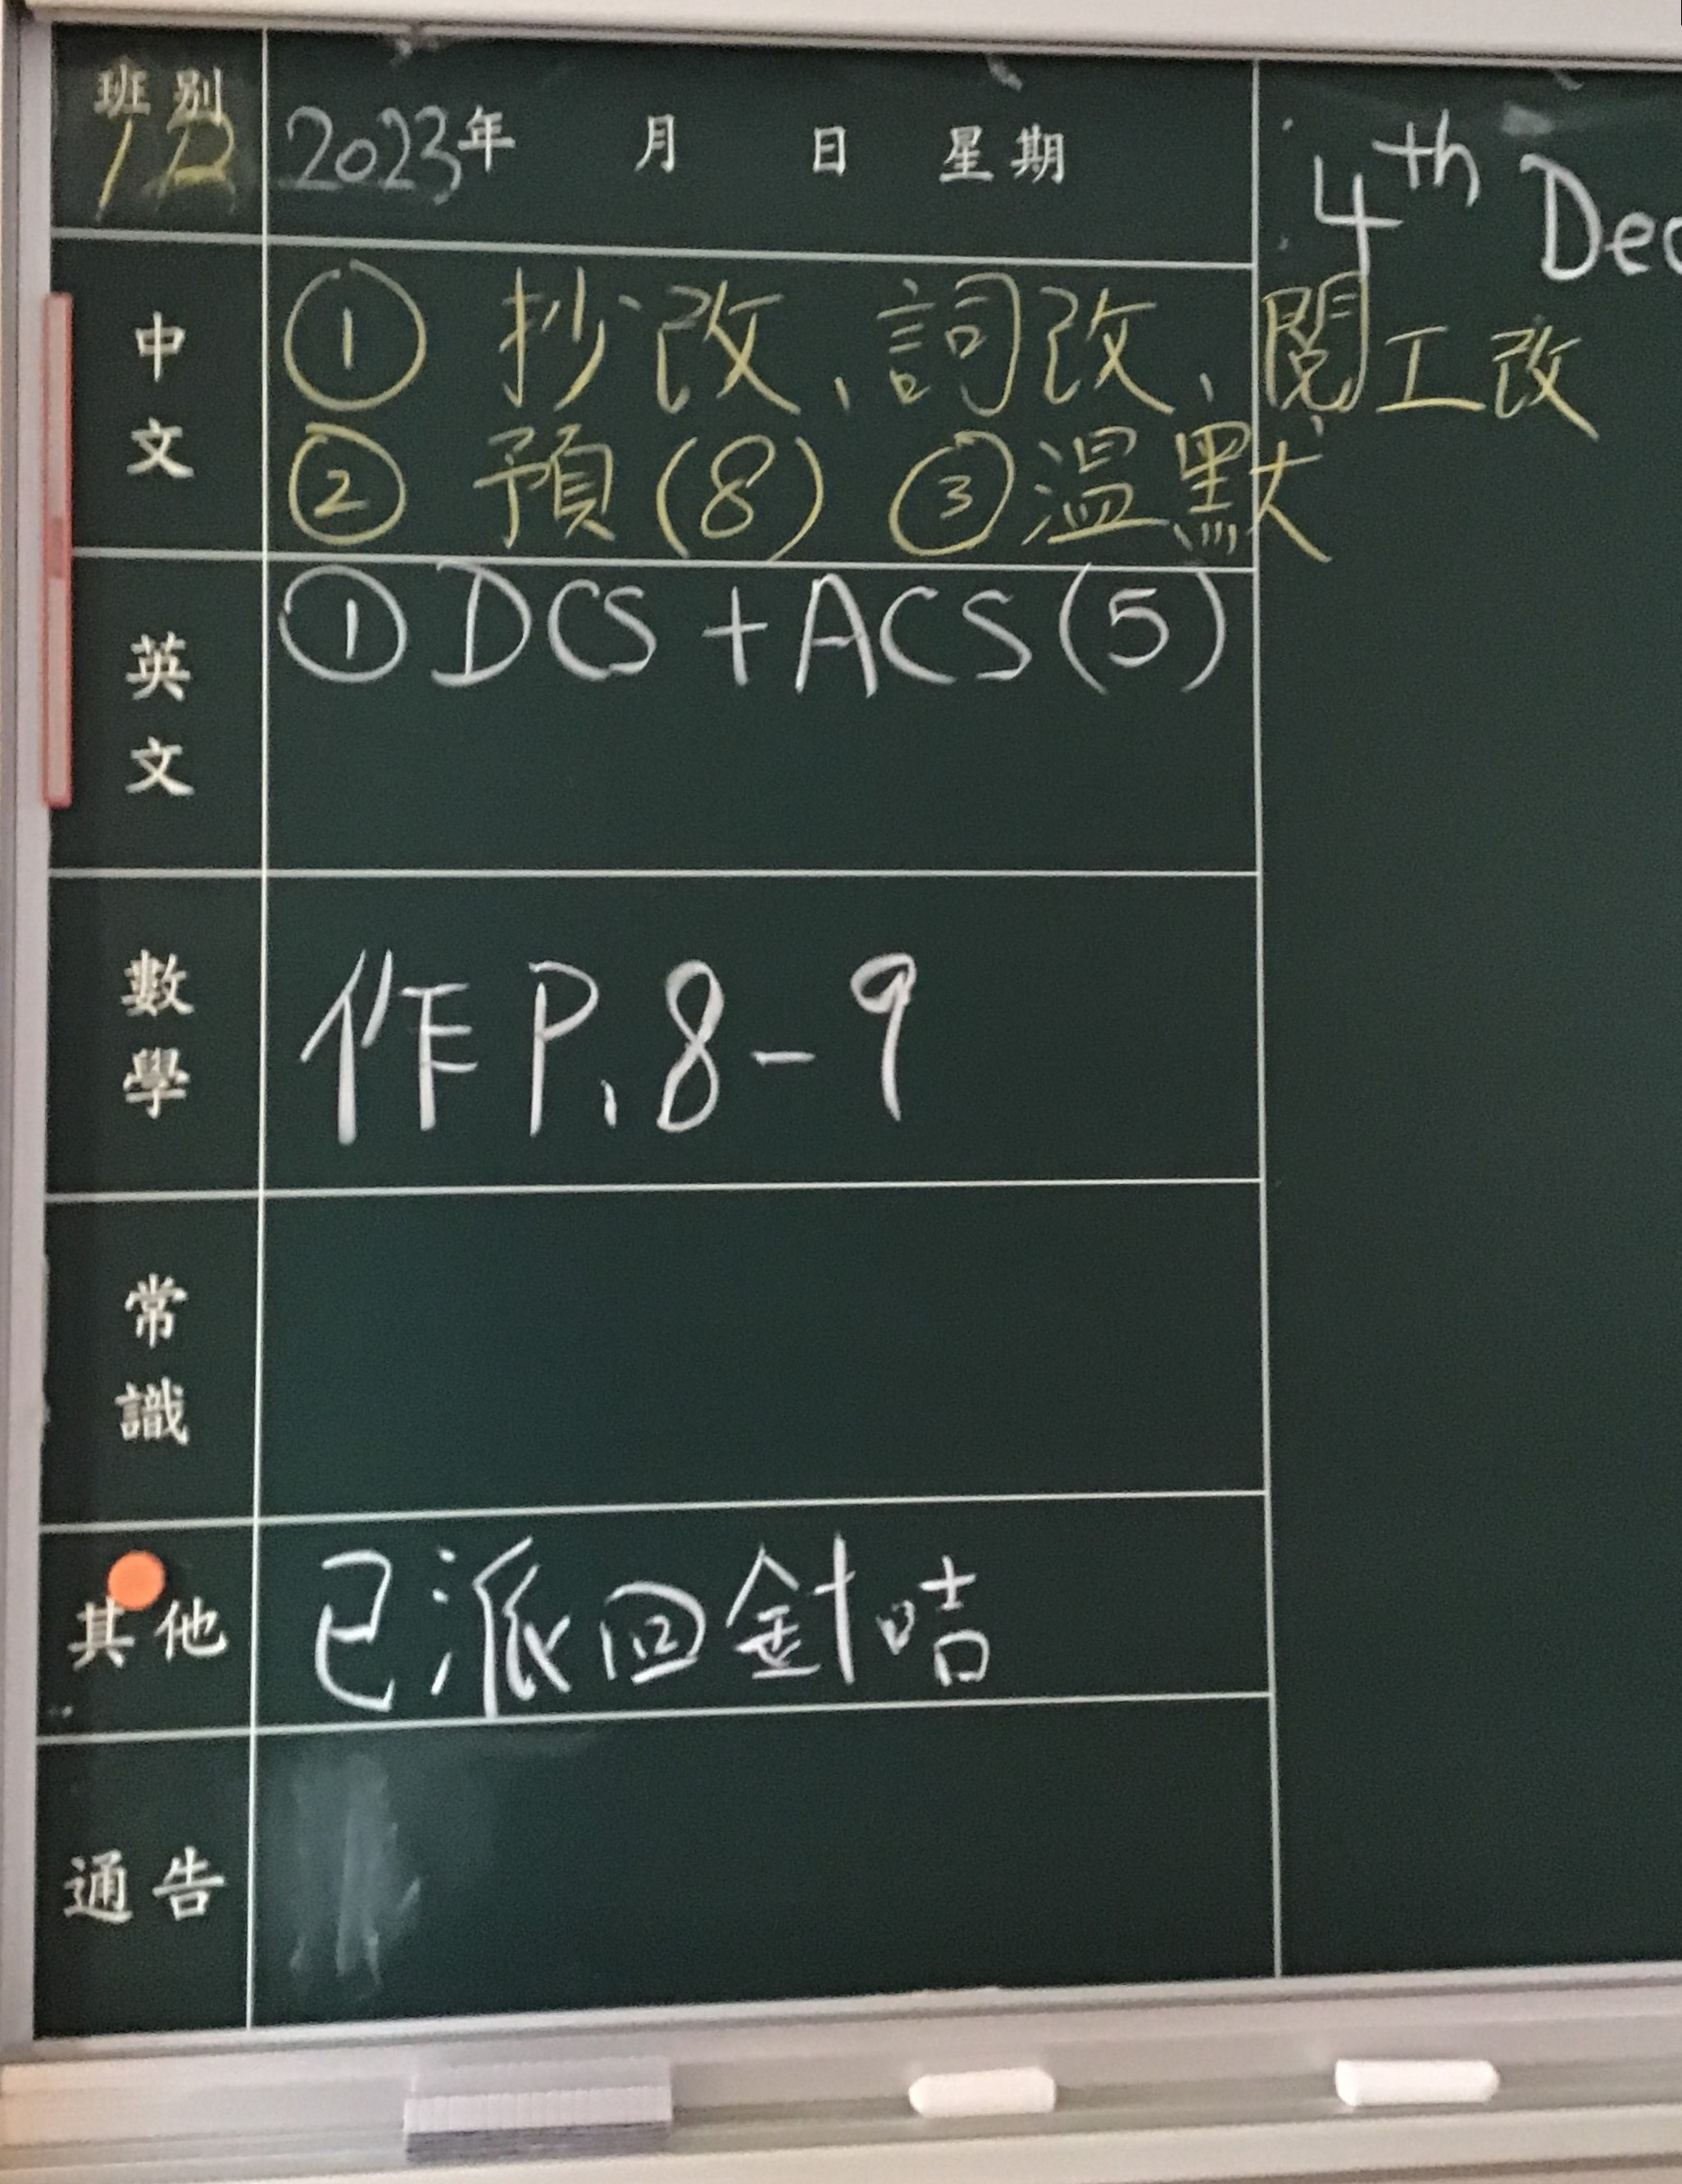 班別
1D
2023年 月 日 星期
4th Dec
中文
① 抄改、詞改、閱工改
② 預(8) ③溫默
英文
① DCS + ACS (5)
數學
作 P. 8 - 9
常識
其他
已派回針咭
通告